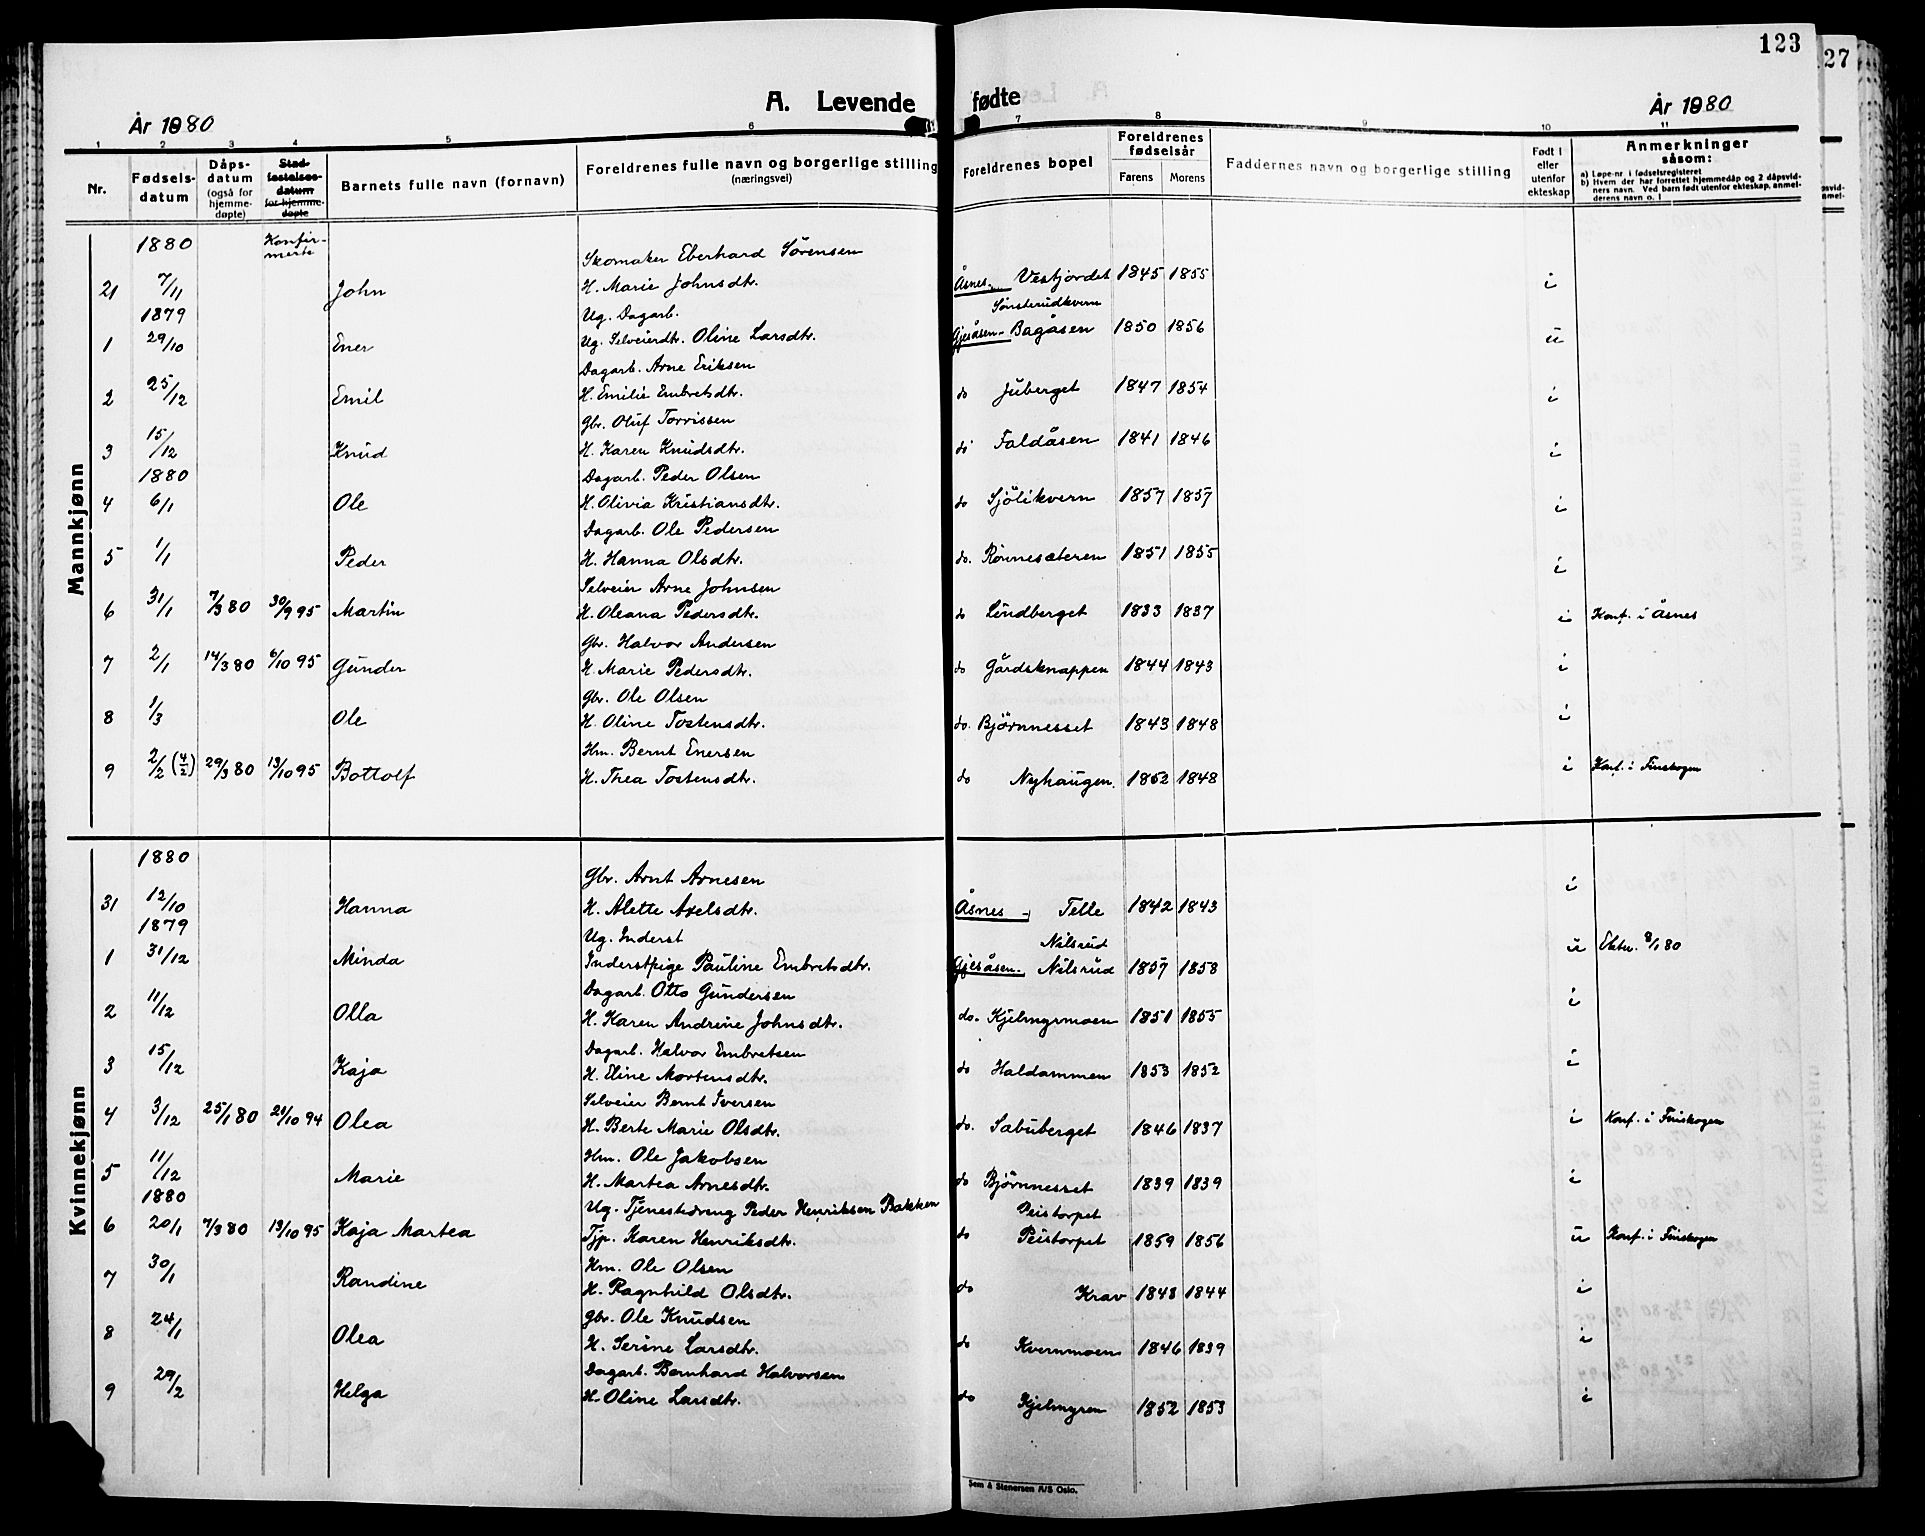 123
27
A. Levende fødte
År 1880
År 1880
1 2 3 4 5 6 7 8 9 10 11
Nr. Fødsels-datum Dåps-datum (også for hjemme-døpte) Stad-festelses-datum for hjemme-døpte Barnets fulle navn (fornavn) Foreldrenes fulle navn og borgerlige stilling (næringsvei) Foreldrenes bopel Foreldrenes fødselsår Farens Morens Faddernes navn og borgerlige stilling Født i eller utenfor ekteskap Anmerkninger såsom:
a) Løpe-nr i fødselsregisteret
b) Hvem der har forrettet hjemmedåp og 2 dåpsvid-
ners navn. Ved barn født utenfor ekteskap, anmel-
derens navn o. l
Mannkjønn
1880 Konfir-
merte Skomaker Eberhard Sörensen
21 7/11 John H. Marie Johnsdtr. Åsnes - Vestjordet 1845 1855 i
1879 Ug. Dagarb. Sönsterudkvern
1 29/10 Ener Ug. Selveierdtr. Oline Larsdtr. Gjesåsen - Bagåsen 1850 1856 u
Dagarb. Arne Eriksen
2 25/12 Emil H. Emilie Embretsdtr. do Juberget 1847 1854 i
Gbr. Oluf Torrissen
3 15/12 Knud H. Karen Knudsdtr. do Faldåsen 1841 1846 i
1880 Dagarb. Peder Olsen
4 6/1 Ole H. Olivia Kristiansdtr. do Sjölikvern 1857 1857 i
Dagarb. Ole Pedersen
5 1/1 Peder H. Hanna Olsdtr. do. Rönnesæteren 1851 1855 i
Selveier Arne Johnsen
6 31/1 7/3 80 30/9 95 Martin H. Oleana Pedersdtr. do Lindberget 1833 1837 i Konf. i Åsnes
Gbr. Halvor Andersen
7 2/1 14/3 80 6/10 95 Gunder H. Marie Pedersdtr. do Gårdsknappen 1844 1843 i
Gbr. Ole Olsen
8 1/3 Ole H. Oline Tostensdtr. do. Björnnesset 1843 1848 i
Hm. Bernt Enersen
9 2/2 (4/2) 29/3 80 13/10 95 Bottolf H. Thea Tostensdtr. do Nyhaugen. 1852 1848 i Konf. i Finskogen
Kvinnekjønn
1880 Gbr. Arnt Arnesen
31 12/10 Hanna H. Alette Axelsdtr. Åsnes - Telle 1842 1843 i
1879 Ug. Inderst Nilsrud
1 31/12 Minda Inderstpige Pauline Embretsdtr. Gjesåsen. Nilsrud 1857 1858 u 8/1 80
Dagarb. Otto Gundersen
2 11/12 Olla H. Karen Andrine Johnsdtr. do. Kjelmyrmoen 1851 1855 i
Dagarb. Halvor Embretsen
3 15/12 Kaja H. Eline Mortensdtr. do Haldammen 1853 1852 i
Selveier Bernt Iversen
4 3/12 25/1 80 21/10 94 Olea H. Berte Marie Olsdtr. do. Sabuberget 1846 1837 i Konf. i Finskogen
Hm. Ole Jakobsen
5 11/12 Marie H. Martea Arnesdtr. do Björnnesset 1839 1839 i
1880 Ug. Tjenestedreng Peder Henriksen Bakken Peistorpet
6 20/1 7/3 80 13/10 95 Kaja Martea Tjp. Karen Henriksdtr. do Peistorpet 1859 1856 u Konf. i Finskogen
Hm. Ole Olsen
7 30/1 Randine H. Ragnhild Olsdtr. do Krav 1848 1844 i
Gbr. Ole Knudsen
8 24/1 Olea H. Serine Larsdtr. do Kvernmoen 1846 1839 i
Dagarb. Bernhard Halvorsen
9 29/2 Helga H. Oline Larsdtr. do Kjelmyren 1852 1853 i
Sem & Stenersen A/S Oslo.